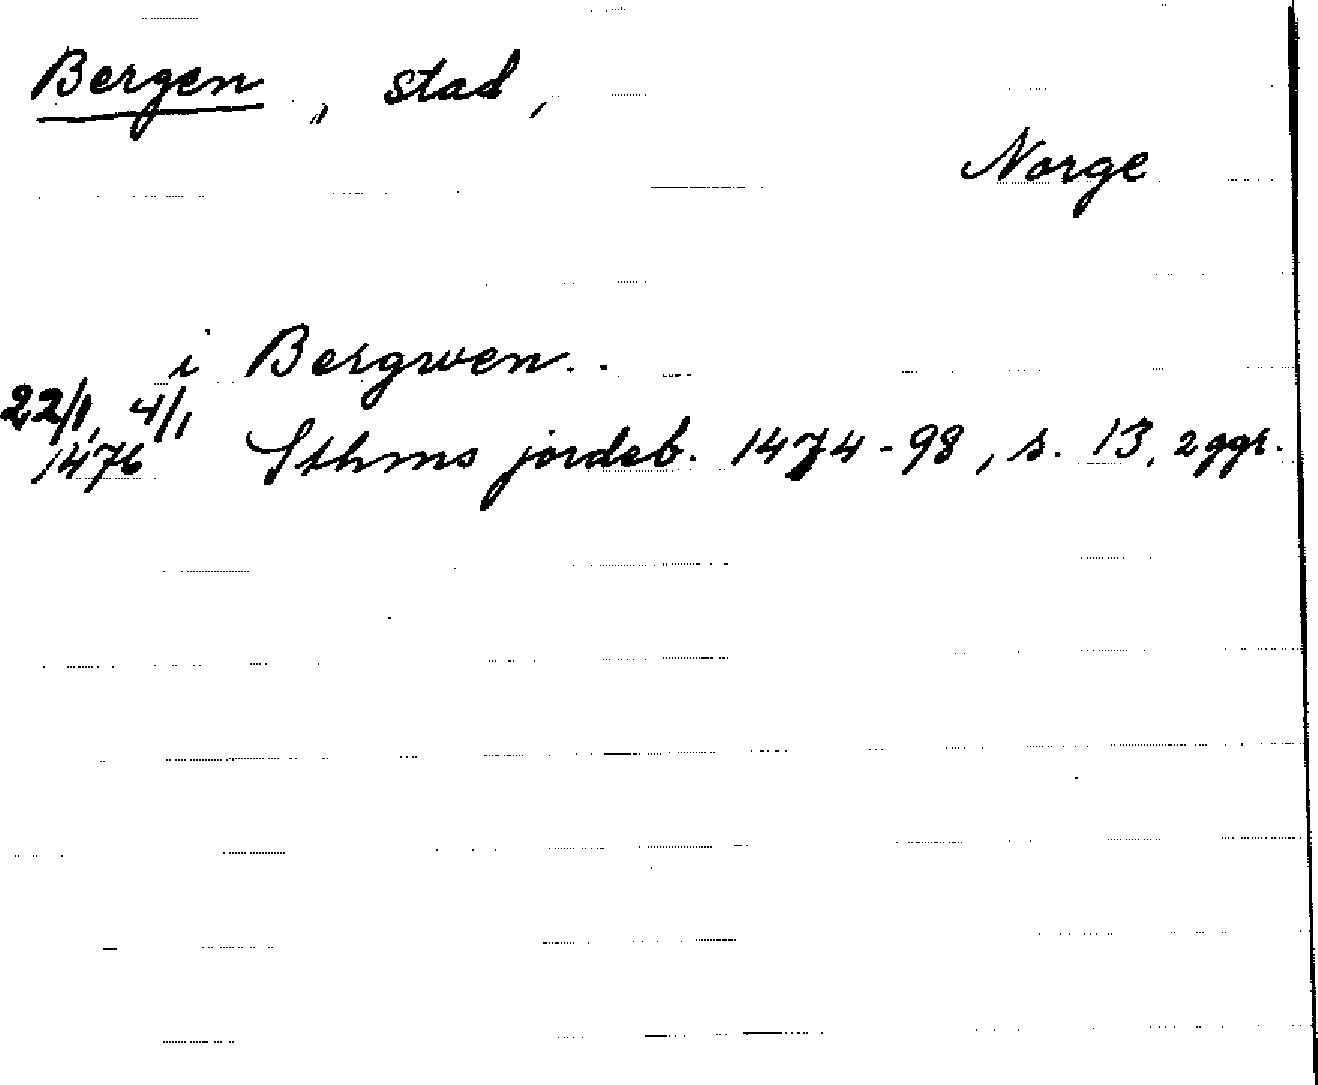 Bergen, stad,
Norge
i Bergwen.
22/1, 4/1
1476 Sthms jordeb. 1474-98, s. 13, 2 ggr.